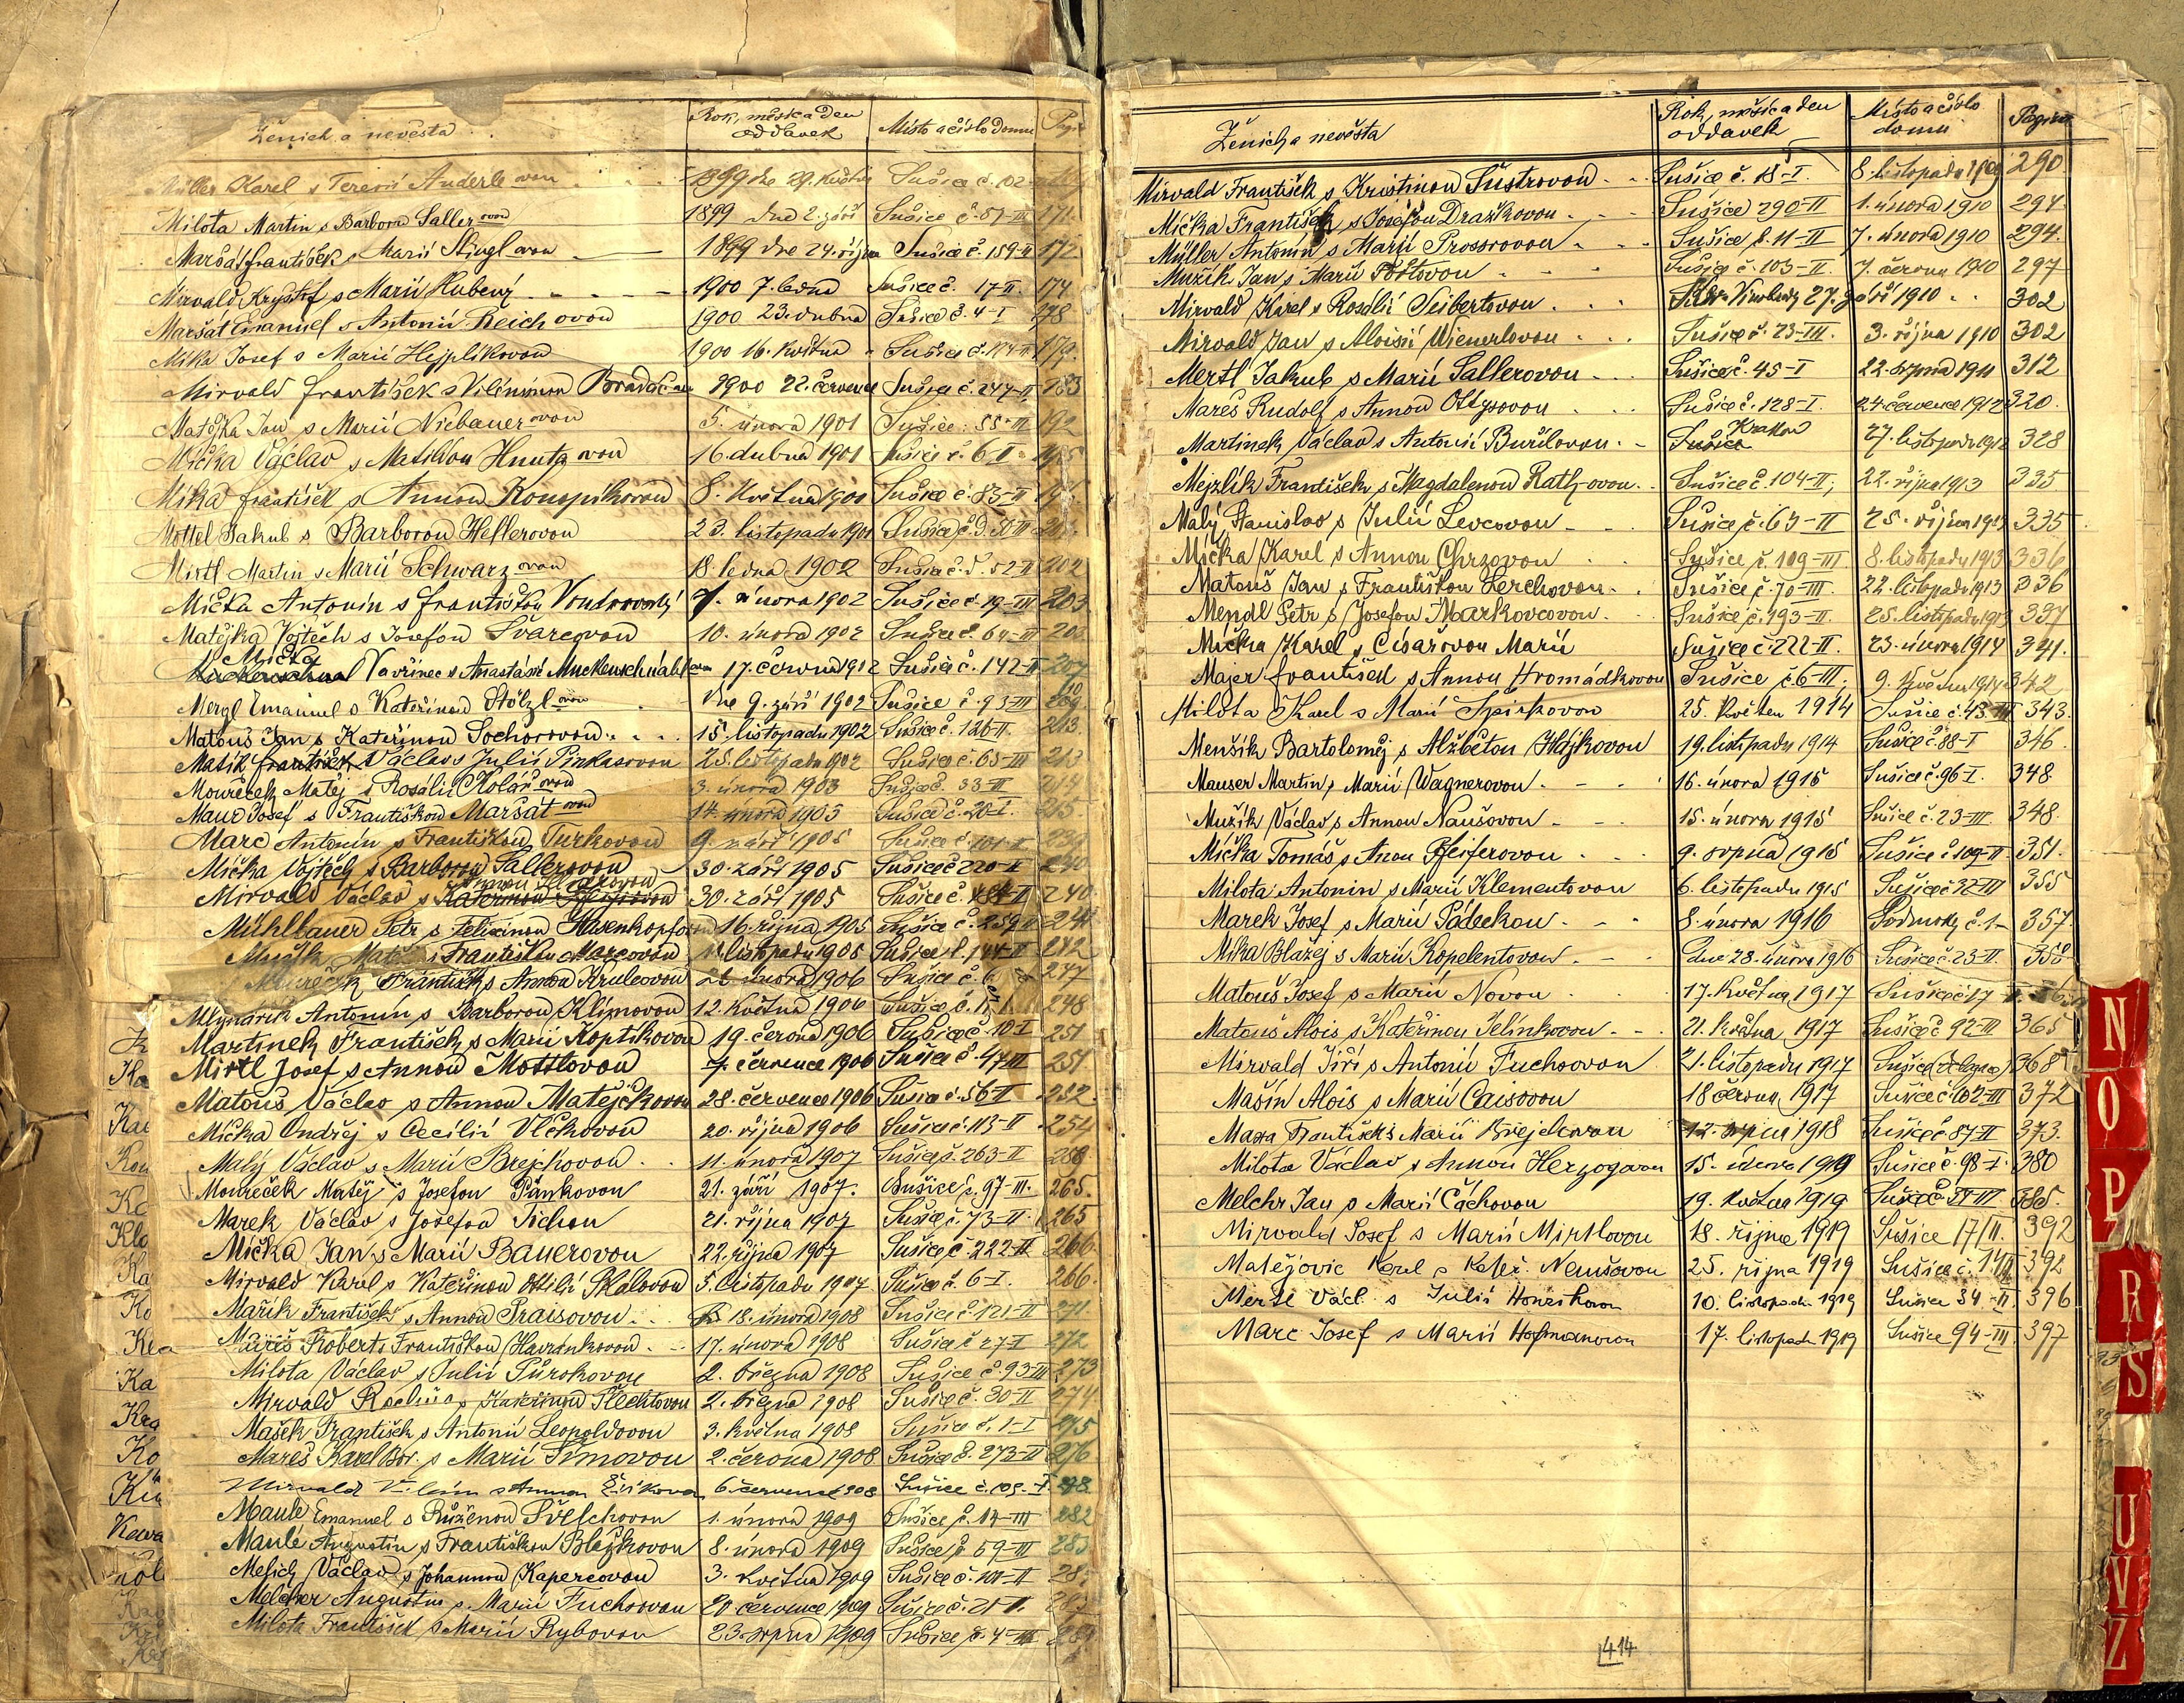 Ženich a nevěsta Rok, měsíc a den oddavek Místo a číslo domu
Müller Karel s Terezií Anderle ovou 1899 dne 29. května Sušice č. 102
Milota Martin s Barborou Saller ovou 1899 dne 2. září Sušice č. 87-III 171
Maršát František s Marií Stingl ovou 1899 dne 24. října Sušice č. 159-II 172
Mirvald Kryštof s Marií Kubený 1900 7. ledna Sušice č. 17-II. 174
Maršát Emanuel s Antonií Reich ovou 1900 23. dubna Sušice č. 4-I 178
Míka Josef s Marií Hejplíkovou 1900 16. května Sušice č. 124-II 179
Mirvald František s Vilémínou Bradáč ou 1900 22. července Sušice č. 247-II 183
Matějka Jan s Marií Niebauer ovou 5. února 1901 Sušice: 55-III 192
Mička Václav s Matildou Hnutz ovou 16. dubna 1901 Sušice č. 6-I 195
Míka František s Annou Konopíkovou 8. května 1901 Sušice č. 83-II
Mottel Jakub s Barborou Hellerovou 23. listopadu 1901 Sušice
Mirtl Martin s Marií Schwarz ovou 18. ledna 1902 Sušice č. d. 52-II 202
Mička Antonín s Františkou Voudrovský 7. února 1902 Sušice č. 19-III 203
Matějka Vojtěch s Josefou Švarcovou 10. února 1902 Sušice č. 64-III 203
Mička
Vavřinec s Anastásií Muckenschnabl ovou 17. června 1902 Sušice č. 142-II 207
Mergl Emanuel s Kateřinou Stölzl ovou dne 9. září 1902 Sušice č. 93-III 209
Matouš Jan s Kateřinou Sochorovou 15. listopadu 1902 Sušice č. 126-II. 213.
Mašík František Václav s Julií Pinkasovou 25. listopadu 1902 Sušice č. 65-III 213
Moureček Matěj s Rosálií Kolář ovou 3. února 1903 Sušice č. 33-II 214
Mauc Josef s Františkou Maršát ovou 14. února 1903 Sušice č. 20-I. 215.
Marc Antonín s Františkou Turkovou 9. září 1905 Sušice č. 101-II 239
Mička Vojtěch s Barborou Sallerovou 30. září 1905 Sušice č. 220-II 240
Mirvald Václav s Kateřinou 30. září 1905 Sušice č. 240.
Mühlbauer Petr s Felicinou Hasenkopfovou 16. října 1905 Sušice č. 259-II 241
Mužík Matěj s Františkou Marcovou listopadu 1905 Sušice č. 144-II 242
Moureček František s Annou Krulcovou února 1906 Sušice č. 6 247
Mlynářík Antonín s Barborou Klímovou 12. května 1906 Sušice č. 248
Martinek František s Marií Koptíkovou 19. června 1906 Sušice č. 10-I 251
Mirtl Josef s Annou Mottlovou 7. července 1906 Sušice č. 47 III 251
Matouš Václav s Annou Matějčkovou 28. července 1906 Sušice č. 56-I 252.
Mička Ondřej s Cecilií Vlčkovou 20. října 1906 Sušice č. 113-II 254
Malý Václav s Marií Brejchovou 11. února 1907 Sušice č. 263-II 258
Moureček Matěj s Josefou Pánkovou 21. září 1907. Sušice č. 97-III. 265.
Marek Václav s Josefou Tichou 21. října 1907 Sušice č. 73-II 265
Mička Jan s Marií Bauerovou 22. října 1907 Sušice č. 222-II 266.
Mirvald Karel s Kateřinou Otilií Skalovou 5. listopadu 1907 Sušice č. 6-I. 266.
Mařík František s Annou Praisovou 18. února 1908 Sušice č. 121-II 271
Mareš Robert s Františkou Havránkovou 17. února 1908 Sušice č. 27-I 272
Milota Václav s Julií Půrokovou 2. března 1908 Sušice č. 93-III 273
Mirvald Rochus s Kateřinou Šlechtovou 2. března 1908 Sušice č. 30-II 274
Mašek František s Antonií Leopoldovou 3. května 1908 Sušice č. 1-I 275
Mareš Karel Bor. s Marií Šímovou 2. června 1908 Sušice č. 273-II 276
Mirvald Vilém s Annou Žižkovou 6. července 908 Sušice č. 109-I 278.
Maule Emanuel s Růženou Švelchovou 1. února 1909 Sušice č. 14-III 282
Maule Augustin s Františkou Blažkovou 8. února 1909 Sušice č. 59-III 283
Melich Václav s Johannou Kaperovou 3. května 1909 Sušice č. 101-II
Melcher Augustus s Marií Fuchsovou 20. července 1909 Sušice č. 21-II. 287
Milota František s Marií Rybovou 23. srpna 1909 Sušice č. 4-III 289
Ženich a nevěsta Rok, měsíc a den oddavek Místo a číslo domu Pagina
Mirvald František s Kristinou Šustrovou Sušice č. 18-I. 8. listopadu 1909 290.
Mička František s Josefou Dražkovou Sušice 290-II 1. února 1910 294
Müller Antonín s Marií Prossrovou Sušice č. 11-II 7. února 1910 294.
Mužík Jan s Marií Poštovou Sušice č. 103-II. 7. června 1910 297
Mirvald Karel s Rosálií Seibertovou Král. Vinohrady 27. září 1910 302
Mirvald Jan s Aloisií Wienerlovou Sušice č. 23-III. 3. října 1910 302
Mertl Jakub s Marií Sallerovou Sušice č. 45-I 22. srpna 1911 312
Mareš Rudolf s Annou Ottysovou Sušice č. 128-I. 24. července 1912 320.
Martinek Václav s Antonií Buřilovou Sušice Krakov 27. listopadu 1912 328
Mejzlík František s Magdalenou Ratz ovou Sušice č. 104-II; 22. října 1913 335
Malý Stanislav s Julií Levcovou Sušice č. 63-II 25. října 1913 335
Mička Karel s Annou Chrzovou Sušice č. 109-III 8. listopadu 1913 336
Matouš Jan s Františkou Lerchovou Sušice č. 70-III. 22. listopadu 1913 336
Mendl Petr s Josefou Markovcovou Sušice č. 193-II. 25. listopadu 1913 337
Mička Karel s Císařovou Marií Sušice č. 222-II. 23. února 1914 341.
Majer František s Annou Hromádkovou Sušice č. 6-III. 9. května 1914 342
Milota Karel s Marií Spirkovou 25. květen 1914 Sušice č. 43-III 343.
Menšík Bartoloměj s Alžbětou Hájkovou 19. listopadu 1914 Sušice č. 88-I 346
Mauser Martin s Marií Wagnerovou 16. února 1915 Sušice č. 96-I. 348
Mužík Václav s Annou Naušovou 15. února 1915 Sušice č. 23-III. 348.
Mička Tomáš s Annou Pfeiferovou 9. srpna 1915 Sušice č. 109-II 351.
Milota Antonín s Marií Klementovou 6. listopadu 1915 Sušice č. 32-III 355
Marek Josef s Marií Pádeckou 8. února 1916 Podmokly č. 1 357.
Míka Blažej s Marií Kopelentovou dne 28. února 1916 Sušice č. 23-II. 358
Matouš Josef s Marií Novou 17. května 1917 Sušice č. 17
Matouš Alois s Kateřinou Jelínkovou 21. května 1917 Sušice č. 92-III 365
Mirvald Jiří s Antonií Fuchsovou 21. listopadu 1917 Sušice 368
Mašín Alois s Marií Caisovou 18 června 1917 Sušice č. 102-III 372
Maxa František s Marií Brejchovou 12. srpna 1918 Sušice č. 87-II 373.
Milota Václav s Annou Herzogovou 15. února 1919 Sušice č. 98-I. 380
Melchr Jan s Marií Čáchovou 19. května 1919 Sušice č. 385.
Mirvald Josef s Marií Mirtlovou 18. října 1919 Sušice 17/II. 392
Matějovic Karel s Kateř. Nemšovou 25. října 1919 Sušice č. 392
Mertl Václ. s Julií Honzíkovou 10. listopadu 1919 Sušice 34-II. 396
Marc Josef s Marií Hofmanovou 17. listopadu 1919 Sušice 94-III 397
414
N
O
P
R
S
U
V
Z